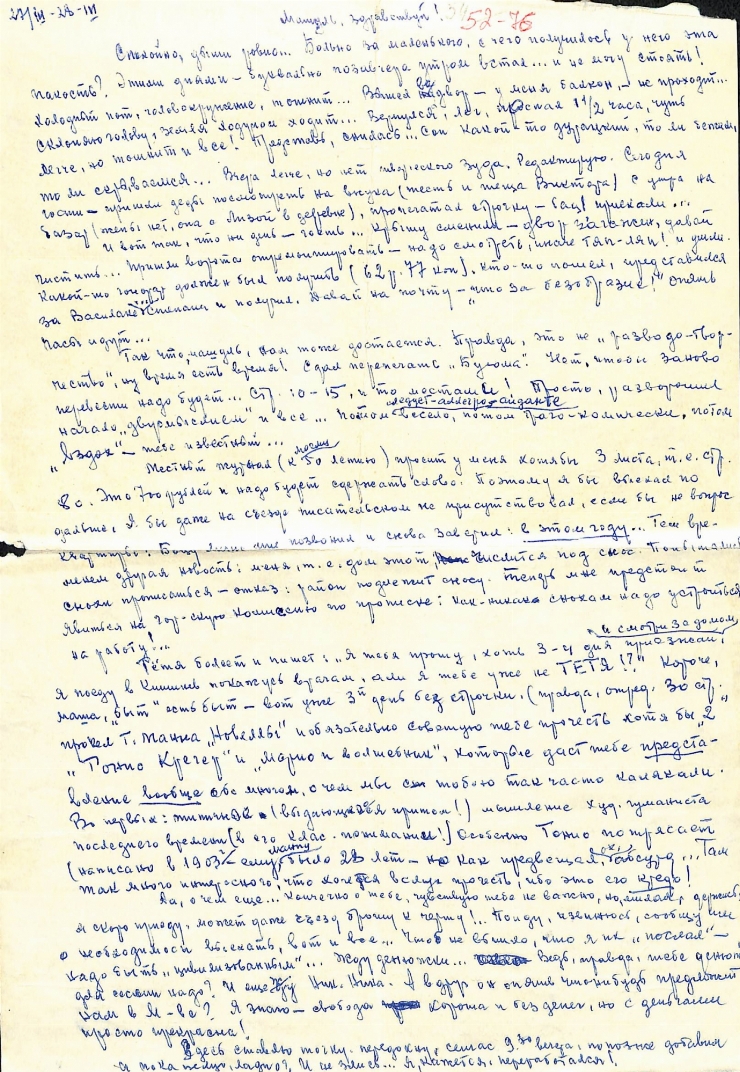 27/III - 28-III
Машуль, здравствуй! 52-76
Спокойно, дыши ровно... Больно за маленького, с чего получилось у него эта
пакость? Этими днями – буквально позавчера утром встал... и не могу стоять!
Холодный пот, головокружение, тошнит... Вышел во двор – у меня балкон, – не проходит...
Вернулся, лег, проспал 1 1/2 часа, чуть
склоняю голову, земля ходуном ходит...
легче, но тошнит и все! Представь, снилась... Сон какой-то дурацкий, то ли
то ли ... Вчера легче, но нет творческого зуда. Редактирую. Сегодня
гости – пришли деды посмотреть на внука (тесть и теща Виктора) с утра на
базар (жены нет, она с Лизой в деревне), прочетал строчку – бац! приехали...
И вот так, что ни день – гость... Крышу сменили – двор загажен, давай
чистить... Пришли ворота отремонтировать – надо смотреть, иначе тяп-ляп! и ушли.
Какой-то гонорар должен был получить (62 р. 77 коп), кто-то пошел, представился
за Василаке Степаныч и получил. Давай на почту – „что за безобразие!" Опять
часы идут...
Так что, машуль, нам тоже достается. Правда, это не „разводо-твор-
чество", ну время есть время! Сдал перепечатать „Бухома". Нет, чтобы заново
перевести надо будет... стр. 10-15, и то местами! Просто, разворошил
начало „двусмыслием" и все... следует-аллегро-айданте потом весело, потом траго-комически, потом
„вздох" – тебе известный...
Местный журнал (к 50 летию) просит у меня хотябы 3 листа, т.е. стр.
80. Это 700 рублей и надо будет сдержать слово. Поэтому я бы выехал по
дальше, я бы даже на съезде писательском не присутствовал, если бы не вопрос
квартиры: мне позвонил и снова заверил: в этом году... Тем вре-
менем другая новость: меня, т.е. дом этот числится под снос.
снохи прописаться – отказ: район подлежит сносу. Теперь мне предстоит
явиться на гор-скую комиссию по прописке: как-никак снохам надо устроиться
на работу!..
и смотри за домом,
Тётя болеет и пишет: „Я тебя прошу, хоть 3-4 дня приезжай,
я поеду в Кишинев покажусь врачам, али я тебе уже не ТЕТЯ!?" Короче,
маша, „быт" есть быт – вот уже 3й день без строчки. (правда, отред. 30 стр.
прочел Т. Манна „Новеллы" и обязательно советую тебе прочесть хотя бы „2"
„Тонио Крегер" и „Марио и волшебник", которые даст тебе представ-
вление вообще обо многом, о чем мы с тобою так часто калякали.
Во первых: типичное (выдающееся притом!) мышление худ. гуманиста
последнего времени (в его клас. понимании!) Особенно Тонио потрясает
(написано в 1903 ему манну было 28 лет – но как предвещал, ох! абсурд... Там
так много интересного, что хочется вслух прочесть, ибо это его кредо!
Да, о чем еще... Конечно о тебе, чувствую тебе не важно, но, милая, держись,
я скоро приеду, может даже съезд брошу к черту!.. Пойду, извинюсь, сообщу им
о необходимости выехать, вот и все... Чтоб не вышло, что я их „послал" –
надо быть „цивилизованным"... Жду денюжки... Ведь, правда, тебе денюжки
для сессии надо? И еще жду Ник. Ника. А вдруг он опять что-нибудь предложит
нам в М-ве? Я знаю – свобода хороша и без денег, но с деньгами
просто прекрасна!
Здесь ставлю точку. передохну, сейчас 9 30 вечера, попозже добавлю
а пока ладно? И не злись... Я, кажется, переработался!